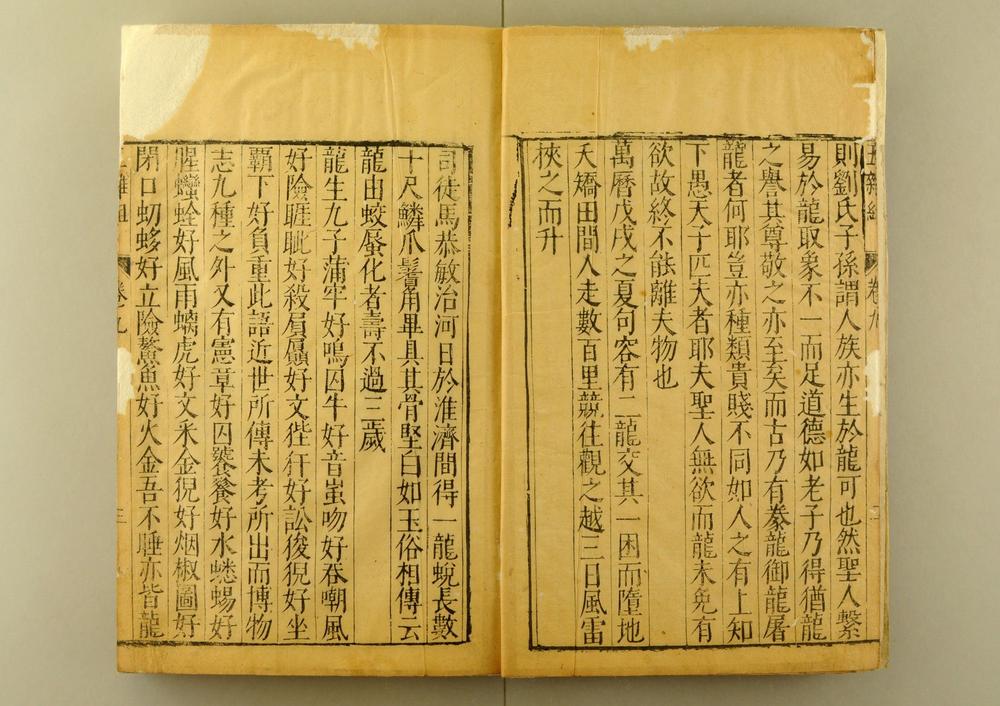 五雜組 卷九
則劉氏子孫謂人族亦生於龍可也然聖人繫
易於龍取象不一而足道德如老子乃得猶龍
之譽其尊敬之亦至矣而古乃有豢龍御龍屠
龍者何耶豈亦種類貴賤不同如人之有上知
下愚天子匹夫者耶夫聖人無欲而龍未免有
欲故終不能離夫物也
萬曆戊戌之夏句容有二龍交其一困而墮地
夭矯田間人走數百里競往觀之越三日風雷
挾之而升
司徒馬恭敏治河日於淮濟間得一龍蛻長數
十尺鱗爪鬐角畢具其骨堅白如玉俗相傳云
龍由蛟蜃化者壽不過三歲
龍生九子蒲牢好鳴囚牛好音蚩吻好吞嘲風
好險睚眦好殺屓贔好文狴犴好訟狻猊好坐
霸下好負重此語近世所傳未考所出而博物
志九種之外又有憲章好囚饕餮好水蟋蜴好
腥䘎蛭好風雨螭虎好文采金猊好烟椒圖好
閉口虭蛥好立險鰲魚好火金吾不睡亦皆龍
雜組 卷九 三